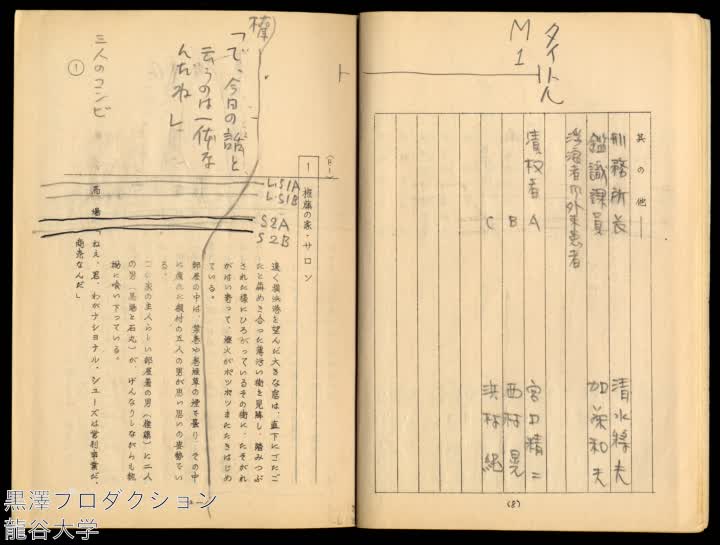 タイトル
M
1
其の他
刑務所長 清水将夫
鑑識課員 加藤和夫
外来患者
債権者 A 宮口精二
B 西村晃
C 浜村純
(8)
ト
(B-1)
1 権藤の家・サロン
遠く横浜港を望んだ大きな窓は、直下にごたご
たと犇めき合った薄汚い街を見降し、踏みつぶ
された様にひろがっているその街に、たそがれ
がはい寄って、燈火がポツポツまたたきはじめ
ている。
部屋の中は、葉巻や巻煙草の煙で曇り、その中
に疲れた顔付の五人の男が思い思いの姿勢でい
る。
この家の主人らしい部屋着の男(権藤)に二人
の男(馬場と石丸)が、げんなりしながらも執
拗に喰い下っている。
馬場「ねえ、君、わがナショナル・シューズは営利事業だ、
商売なんだ」
L・S1A
L・S1B
S2A
S2B
権
「で、今日の話と
云うのは一体な
んだね」
三人のコンビ
1
黒澤プロダクション
龍谷大学